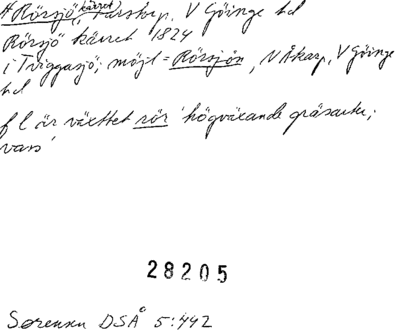 *Rörsjö (kärret), Farstorp, V Göinge hd
Rörsjö kärret 1824
i Tviggasjö; möjl = Rörsjön, N Åkarp, V Göinge
hd
f l är växttet rör 'högväxande gräsarter;
vass'
28205
Sørensen DSÅ 5:442